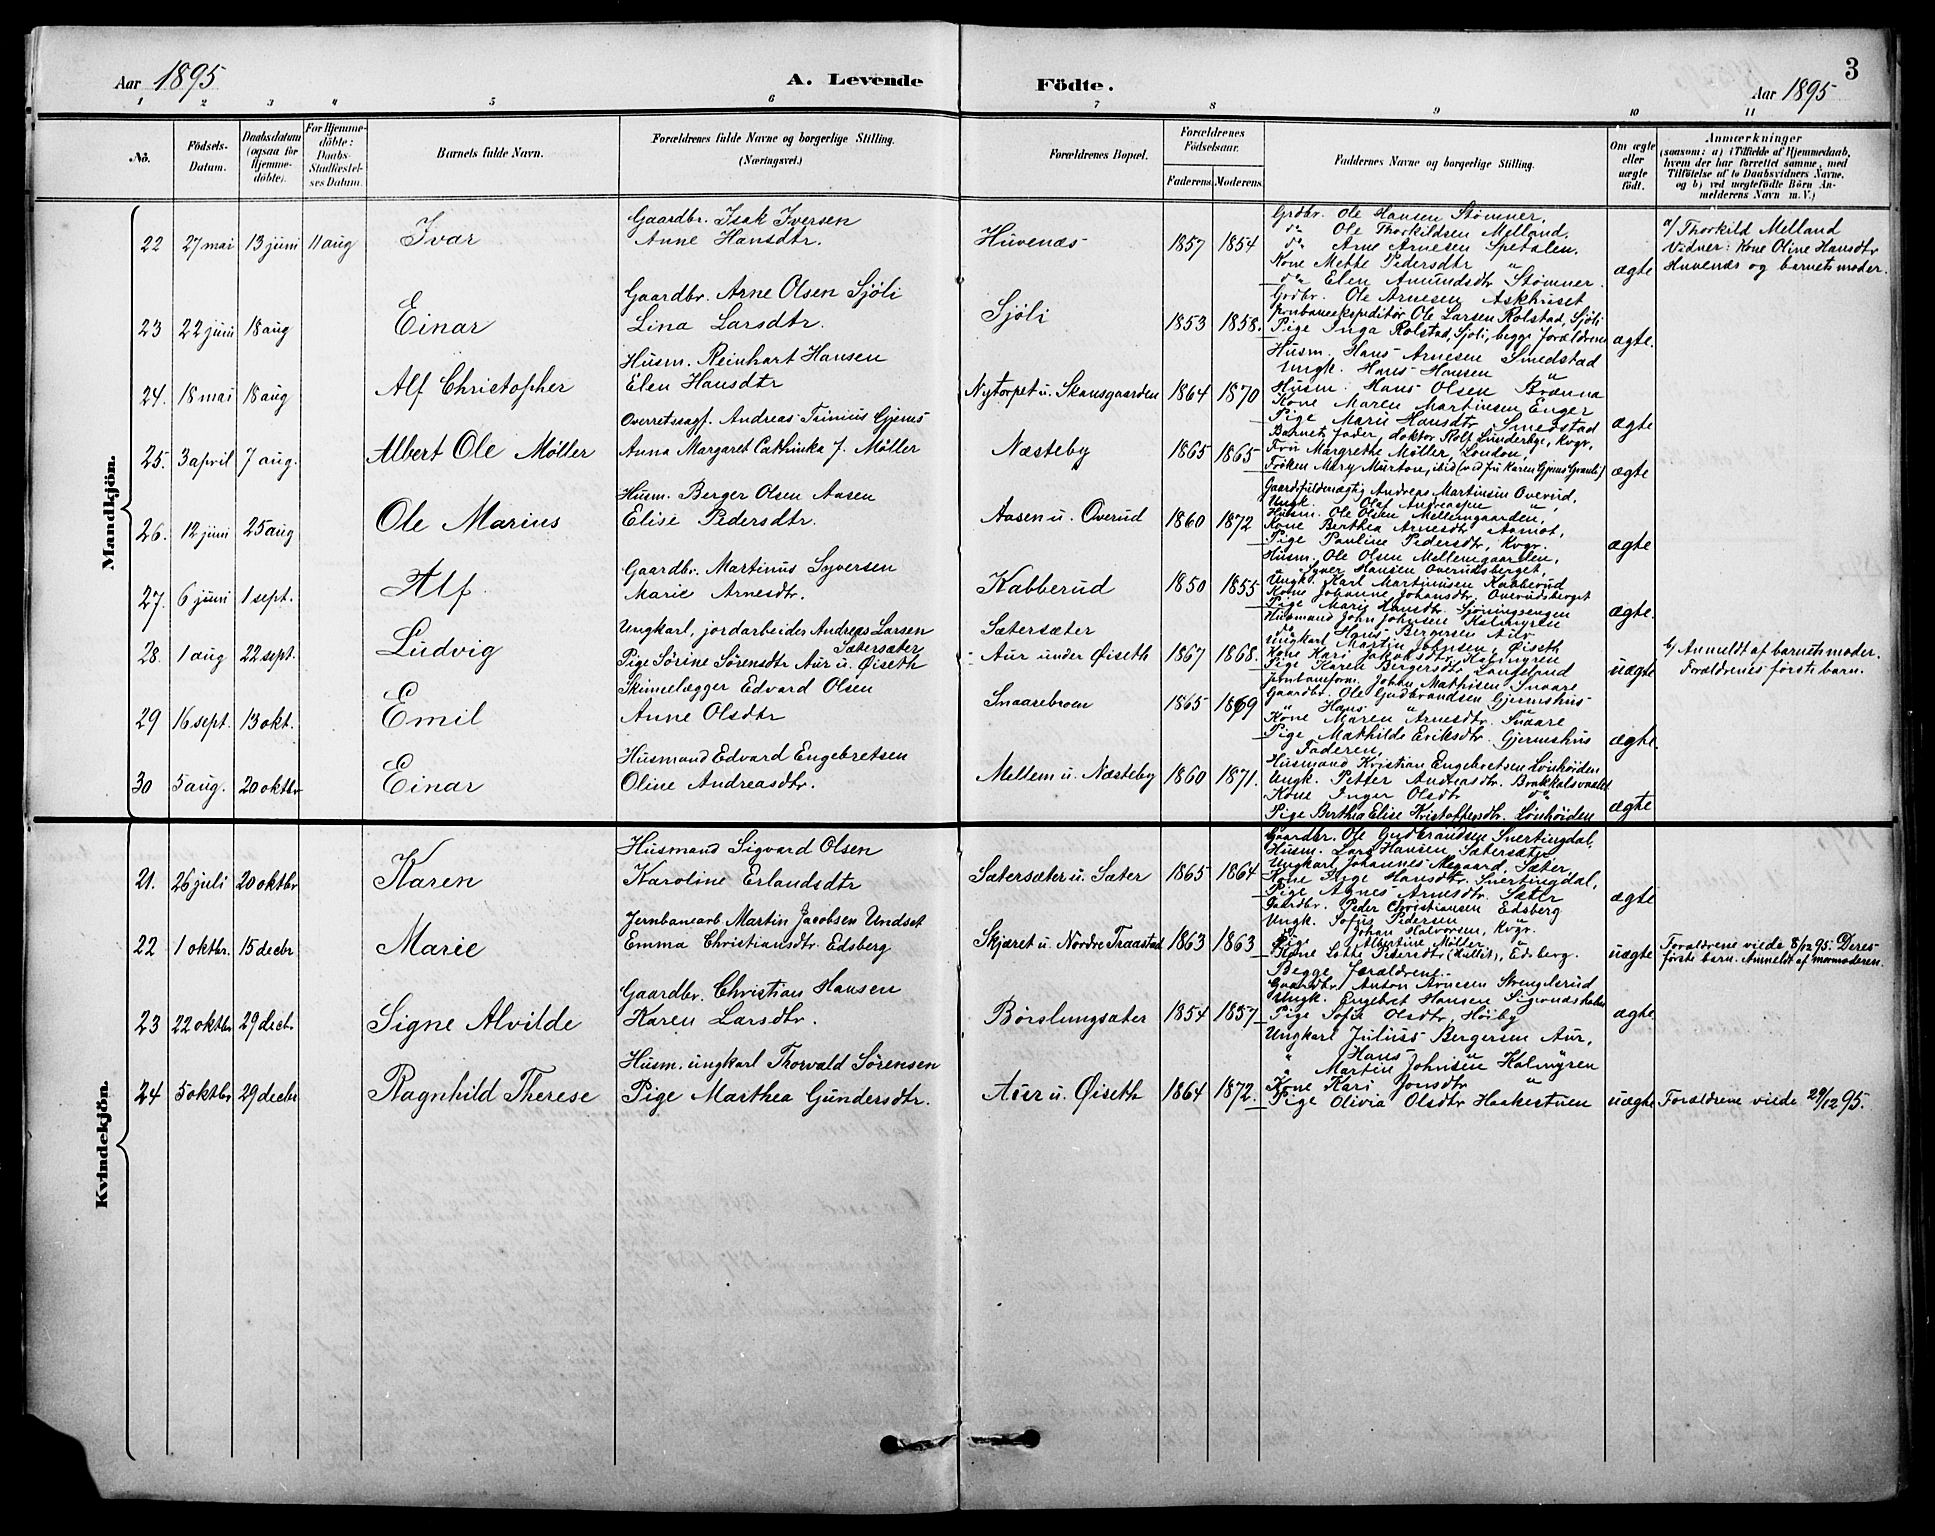 Aar 1895
A. Levende Födte.
3
Aar 1895
1 2 3 4 5 6 7 8 9 10 11
No.
Födsels-Datum.
Daabsdatum (ogsaa for Hjemme-döbte).
For Hjemme-döbte: Daabs-Stadfæstel-ses Datum.
Barnets fulde Navn.
Forældrenes fulde Navne og borgerlige Stilling. (Næringsvei.)
Forældrenes Bopæl.
Forældrenes Födselsaar.
Faderens Moderens
Faddernes Navne og borgerlige Stilling.
Om ægte eller uægte födt.
Anmærkninger
(saasom: a) i Tilfælde af Hjemmedaab,
hvem der har forrettet samme, med
Tilföielse af to Daabsvidners Navne,
og b) ved uægtefödte Börn An-
melderens Navn m. V.)
Mandkjön.
22 27 mai 13 juni 11 aug Ivar
Gaardbr. Isak Iversen
Anne Hansdtr.
Huvenæs 1857 1854
Grdbr. Ole Hansen Stømner,
do Ole Thorkildsen Melland,
do Arne Arnesen Spetalen.
Kone Mette Pedersdtr "
do Elen Amundsdtr Stømner.
ægte
a/ Thorkild Melland
Vidner: Kone Oline Hansdtr
Huvenæs og barnets moder.
23 22 juni 18 aug Einar
Gaardbr. Arne Olsen Sjöli
Lina Larsdtr.
Sjöli 1853 1858.
Grdbr. Ole Arnesen Askhuset
Jernbaneekspeditör Ole Larsen Rolstad, Sjöli
Pige Inga Rolstad, Sjöli, begge Forældrene
ægte.
24. 18 mai 18 aug Alf Christopher
Husm. Reinhart Hansen
Elen Hansdtr
Nytorpet u. Skansgaarden 1864 1870
Husm. Hans Arnesen Smedstad
Ungk. Hans Hansen "
Husm. Hans Olsen Brænna
Kone Maren Martinsen Enger
Pige Marie Hansdtr Smedstad
ægte
25. 3 april 7 aug. Albert Ole Möller
Overretssagf. Andreas Trinius Gjems
Anna Margaret Cathinka J. Möller
Næsteby 1865 1865
Barnets fader, doktor Rolf Lunderbye, Kvgr,
Fru Margrethe Møller, London,
Frøken Mary Murton, ibid (ved Fr. Karen Gjems Granli)
ægte
26. 12 juni 25 aug Ole Marius
Husm. Berger Olsen Aasen
Elise Pedersdtr.
Aasen u. Overud 1860 1872
Gaardsfuldmægtig Andreas Martinsen Overud,
Ungk. Olaf Andreassen "
Husm. Ole Olsen Mellemgaarden,
Kone Berthea Arnesdtr Aamot,
Pige Pauline Pedersdtr, Kvgr.
ægte
27. 6 juni 1 sept. Alf
Gaardbr. Martinus Syversen
Marie Arnesdtr.
Kabberud 1850 1855
Husm. Ole Olsen Mellemgaarden,
" Syver Hansen Overudsberget,
Ungk. Karl Martinusen Kabberud
Kone Johanne Johansdtr. Overudsberget
Pige Marie Hansdtr. Sjöningsengen
ægte.
28. 1 aug 22 sept. Ludvig
Ungkarl, jordarbeider Andreas Larsen Sætersæter
Pige Sörine Sörensdtr Aur u. Øiseth
Sætersæter
Aur under Øiseth 1867 1868.
Husmand John Johnsen Kolmyrse
do Hans Bergersen
Ungkarl Martin Johnsen, Øiseth
Kone Kari Jakobsdtr, Kolmyren
Pige Karen Bergersdtr Langstrand
uægte
b/ Anmeldt af barnets moder.
Forældrenes første barn.
29 16 sept. 13 okt. Emil
Skinnelægger Edvard Olsen
Anne Olsdtr
Snaarebroen 1865 1869
Jernbaneform. Johan Mathisen Snaare
Gaardbr. Ole Gudbrandsen Gjermshus
" Hans " "
Kone Maren Arnesdtr. Snaare
Pige Mathilde Eriksdtr. Gjermshus
ægte.
30 5 aug. 20 oktbr Einar
Husmand Edvard Engebretsen
Oline Andreasdtr.
Mellem u. Næsteby 1860 1871.
Faderen,
Husmand Kristian Engebretsen Lönhöiden
Ungk. Petter Andreasdtr. Brakkalsvaalet
Kone Inger Olsdtr do
Pige Berthea Elise Kristoffersdtr. Lönhöiden
ægte
Kvindekjön.
21. 26 juli 20 oktbr Karen
Husmand Sigvard Olsen
Karoline Erlandsdtr
Sætersæter u. Sæter 1865 1864
Gaardbr. Ole Gudbrandsen Snertingdal,
Husm. Lars Hansen, Sætersæter
Ungkarl Johannes Megaard, Sæter,
Kone Hansdtr. Snertingdal,
Pige Agnes Arnesdtr. Sæter
ægte
22 1 oktbr. 15 decbr Marie
Jernbanearb. Martin Jacobsen Undset
Emma Christiansdtr. Edsberg
Skjæret u. Nordre Traastad 1863 1863
Gaardbr. Peder Christiansen Edsberg
Ungk. Sofus Pedersen "
" Johan Halvorsen, Kvgr.
Pige Albertine Möller "
Kone Lotte Pedersdtr (Hullet), Edsberg.
uægte
Forældrene viede 8/12 95. Deres
første barn. Anmeldt af mormoderen.
23 22 oktbr 29 decbr Signe Alvilde
Gaardbr. Christian Hansen
Karen Larsdtr.
Børslungsæter 1854 1857
Begge forældrene.
Gaardbr. Anton Arnesen Strengelsrud
Ungk. Engebret Hansen
Pige Sofie Olsdtr, Höiby
ægte
24 5 oktbr 29 decbr Ragnhild Therese
Husm. ungkarl Thorvald Sörensen
Pige Marthea Gundersdtr.
Aur u. Øiseth 1864 1872.
Ungkarl Julius Bergersen Aur,
" Hans " "
" Martin Johnsen Kolmyren
Kone Kari Jonsdtr "
Pige Olivia Olsdtr Haakestuen
uægte
Forældrene viede 29/12 95.